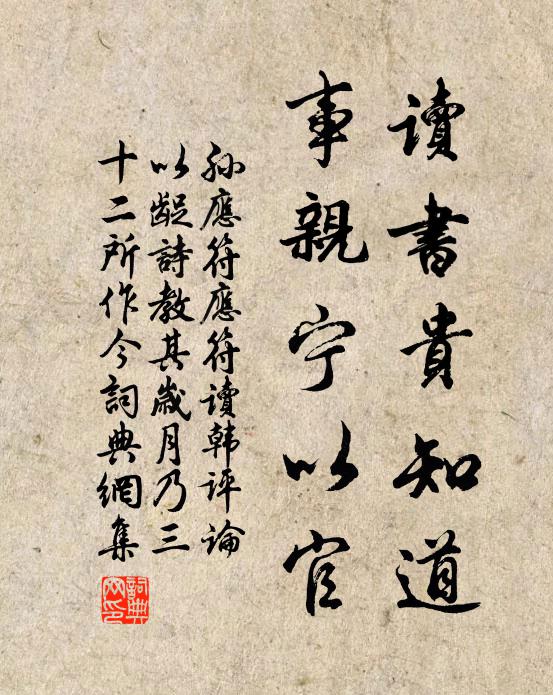 讀書貴知道
事親宁以官
孙應符應符讀韩评論
以龊詩教其歲月乃三
十二所作今詞典網集
詞典網印